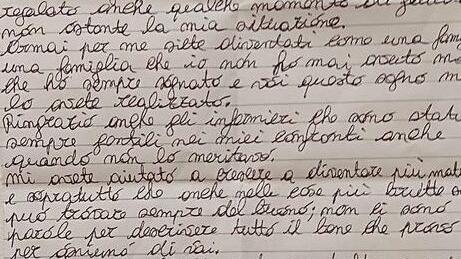 regalato anche qualche momento di
non ostante la mia situazione.
Ormai per me siete diventati come una fami
una famiglia che io non ho mai avuto m
che ho sempre sognato e voi questo sogno m
lo avete realizzato.
Ringrazio anche gli infermieri che sono stati
sempre gentili nei miei confronti anche
quando non lo meritavo.
Mi avete aiutato a crescere a diventare più mat
e sopratutto che anche nelle cose più brutte
può trovare sempre del buono; non ci sono
parole per descrivere tutto il bene che provo
per ognuno di voi.